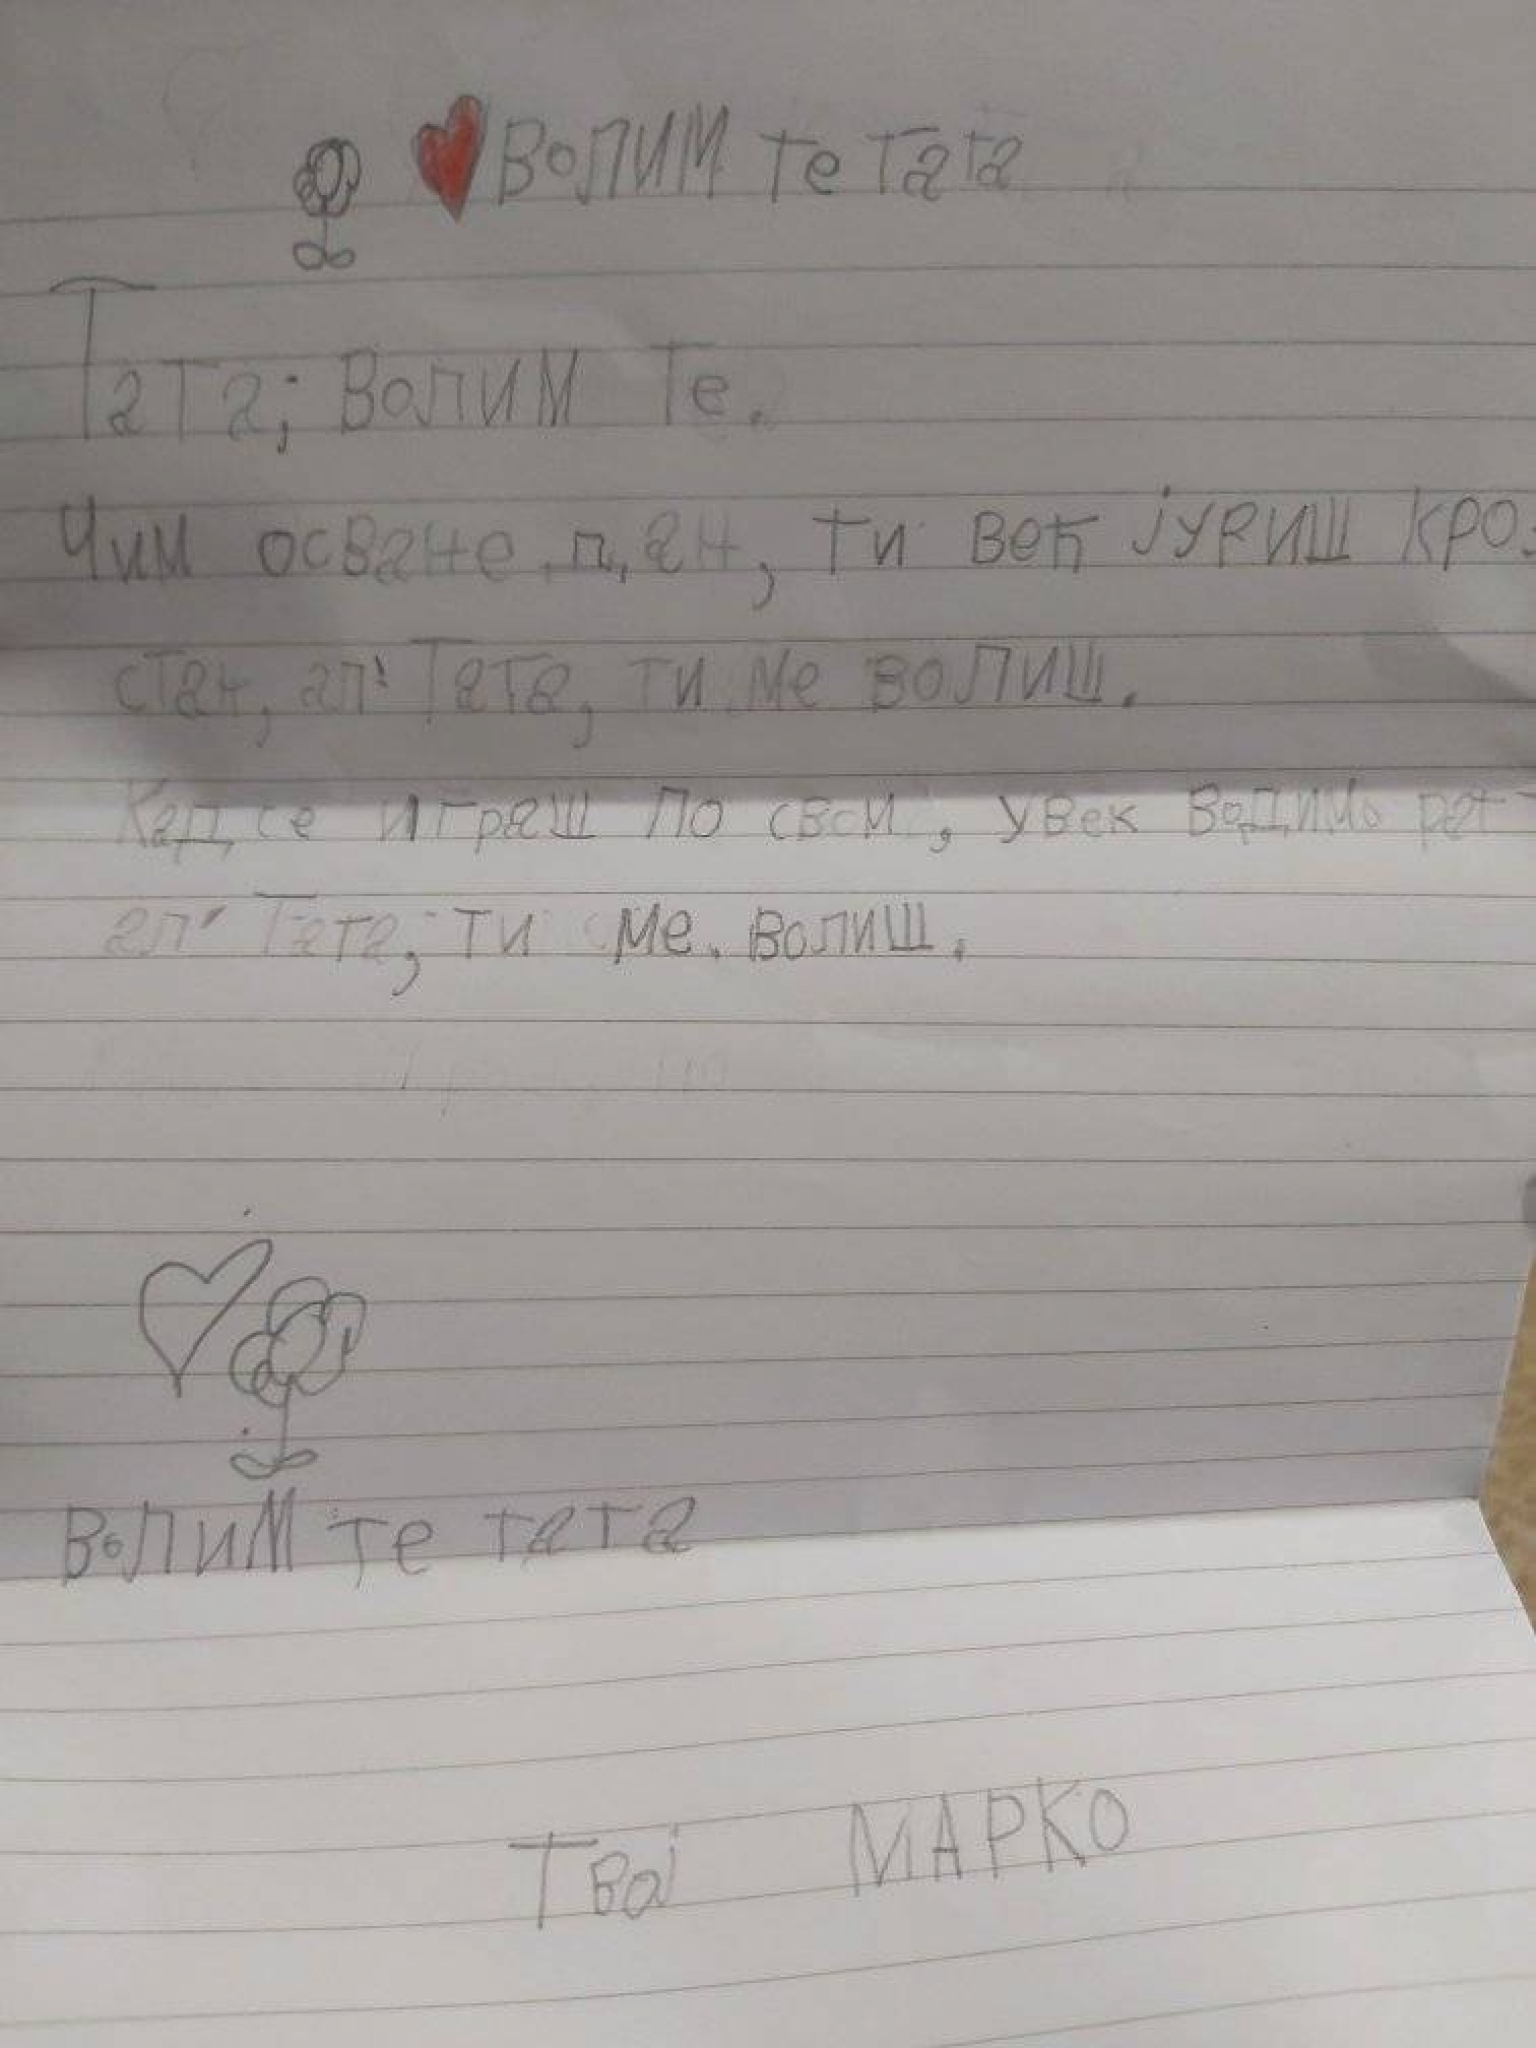 Волим те тата
Тата; Волим Те.
Чим осване дан, ти већ јуриш кро
стан, ал' Тата, ти ме волиш.
Кад се играш по свом, увек водимо рат
ал' Тата, ти ме. волиш.
Волим те тата
Твој МАРКО